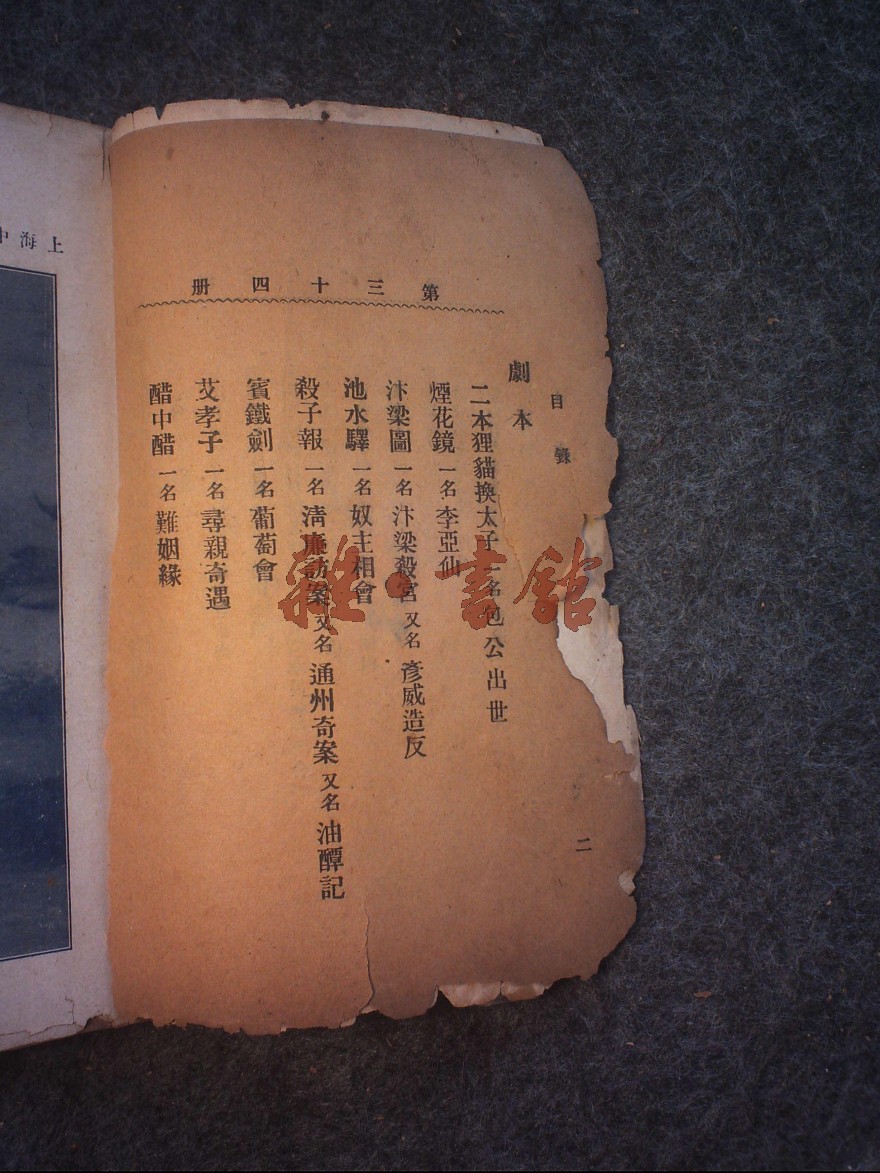 第三十四册
目錄
劇本
二本狸貓換太子 名包公出世
煙花鏡 一名李亞仙
汴梁圖 一名汴梁殺宮 又名彥威造反
池水驛 一名奴主相會
殺子報 一名清廉訪案 又名通州奇案 又名油醰記
賓鐵劍 一名葡萄會
艾孝子 一名尋親奇遇
醋中醋 一名難姻緣
二
上海中
雜·書館